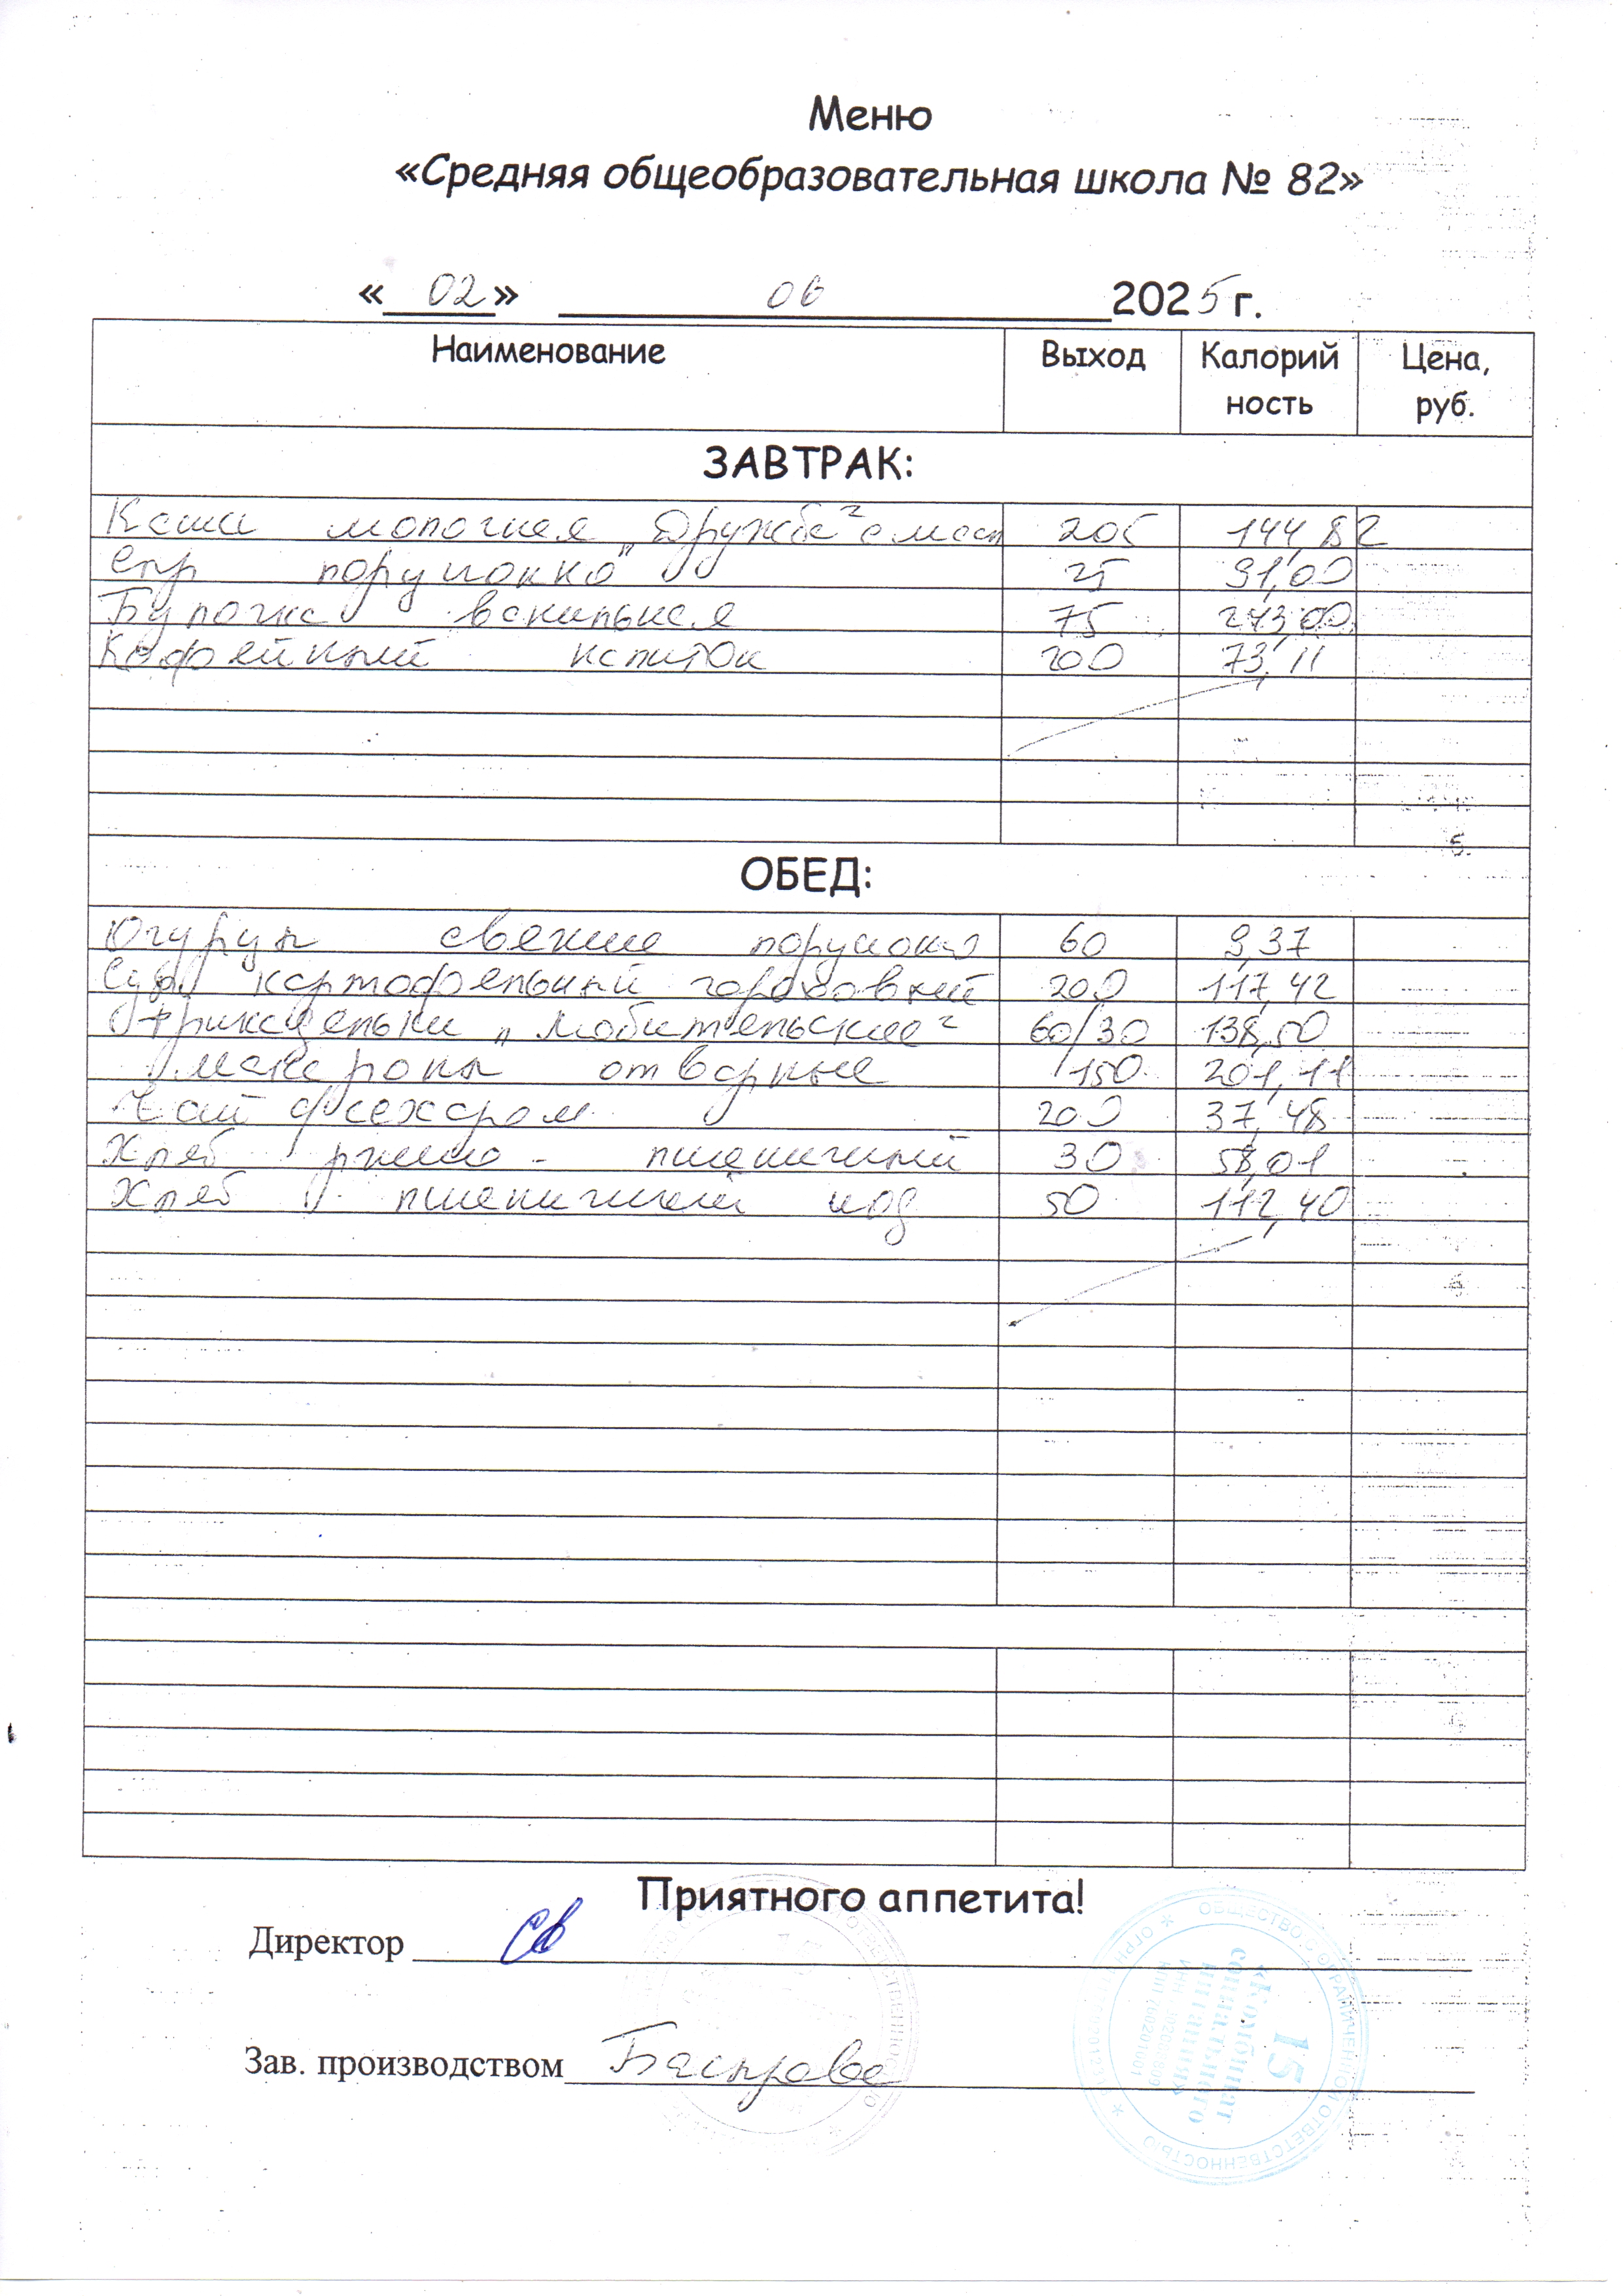 Меню
«Средняя общеобразовательная школа № 82»
«02» 06 2025 г.
Наименование Выход Калорий Цена,
ность руб.
ЗАВТРАК:
Каша молочная „Дружба" с масл 205 144,82
Сыр порционно 25 91,00
Булочка ванильная 75 243,00
Кофейный напиток 200 73,11
ОБЕД:
Огурцы свежие порционо 60 9,37
Суп картофельный гороховый 200 117,42
Фрикадельки „Любительские" 60/30 138,50
макароны отварные 150 201,11
Чай с сахаром 200 37,48
Хлеб ржано - пшеничный 30 58,01
Хлеб пшеничный йод 50 112,40
Приятного аппетита!
Директор
Зав. производством
ОБЩЕСТВО С ОГРАНИЧЕННОЙ ОТВЕТСТВЕННОСТЬЮ
«Комбинат
социального
питания»
15